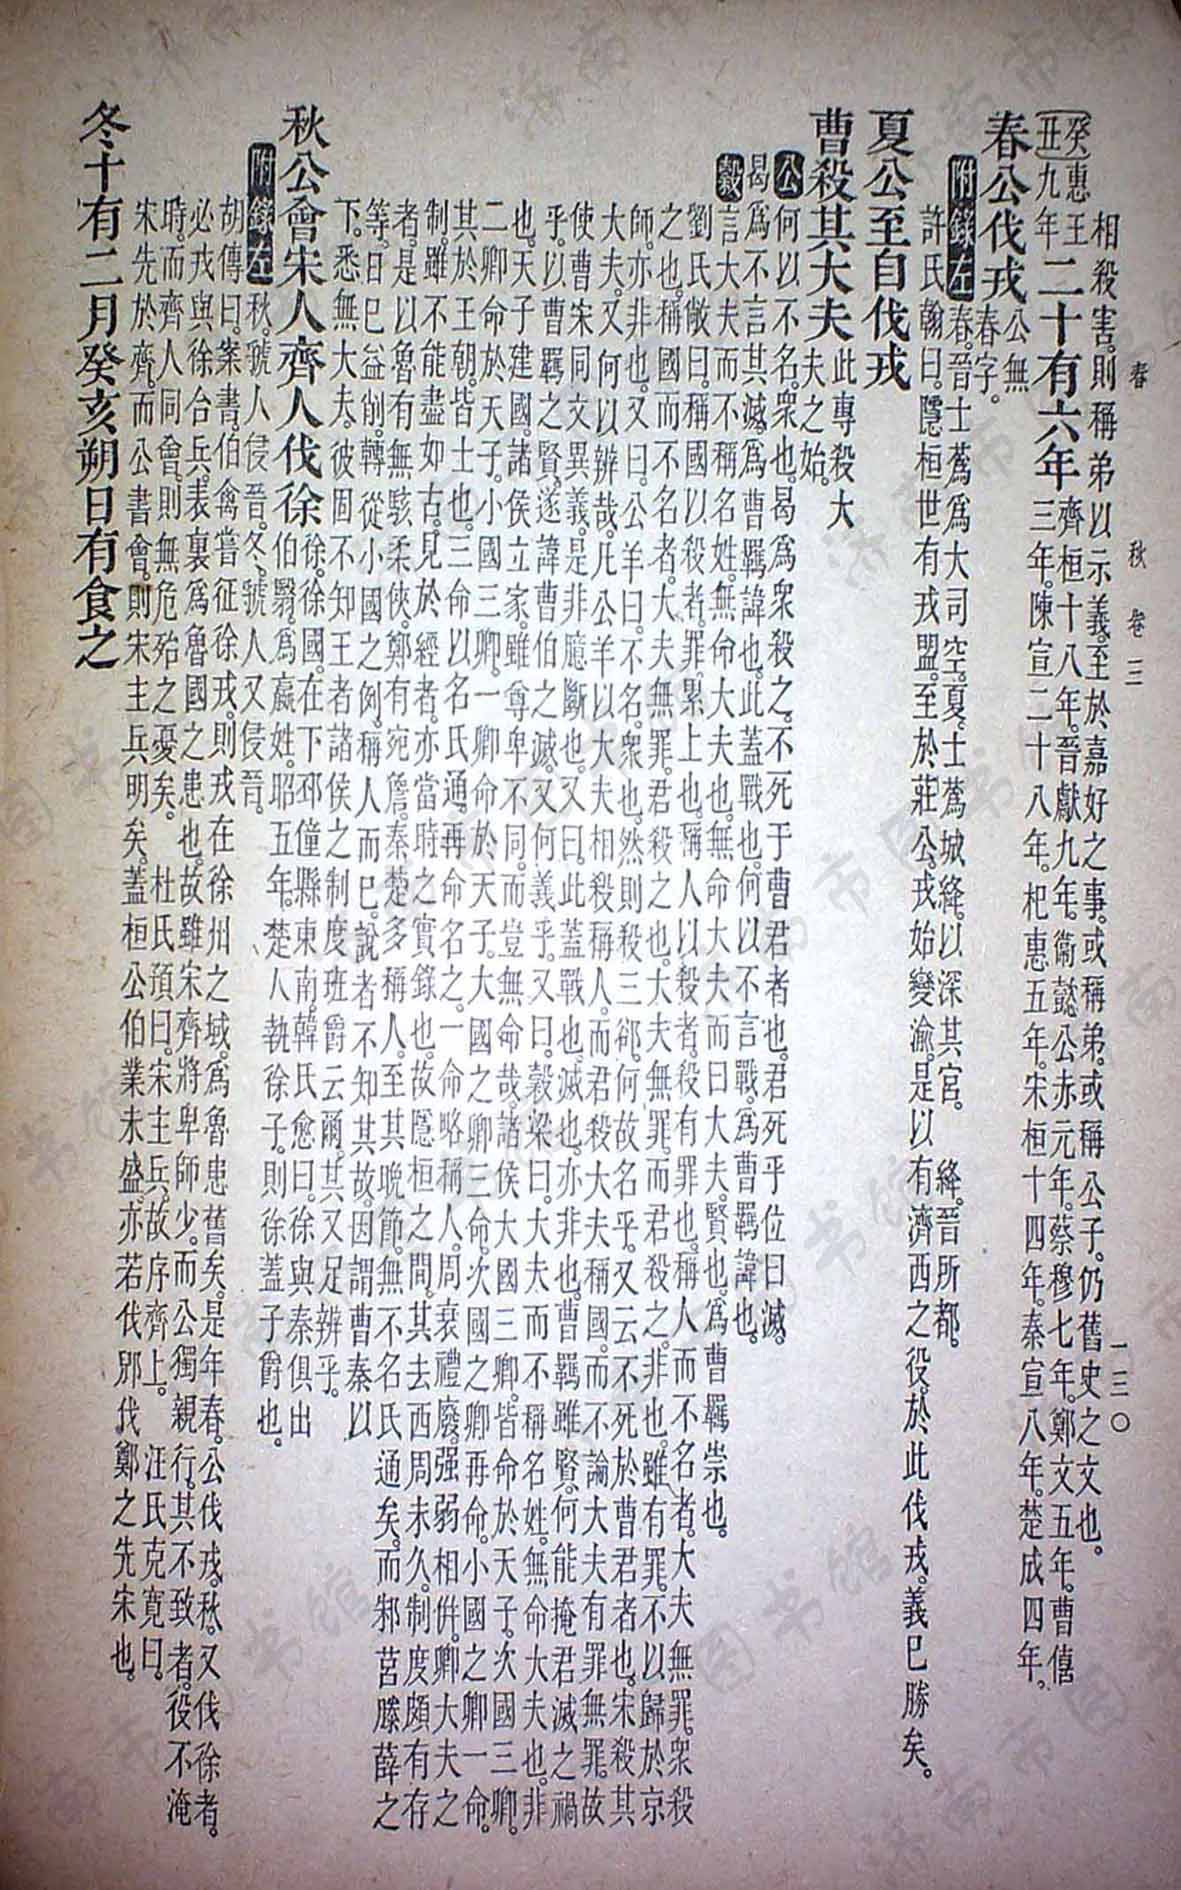 春 秋 卷三 一三〇
相殺害。則稱弟以示義。至於嘉好之事。或稱弟。或稱公子。仍舊史之文也。
〔癸丑〕惠王九年二十有六年 齊桓十八年。晉獻九年。衞懿公赤元年。蔡穆七年。鄭文五年。曹僖三年。陳宣二十八年。杞惠五年。宋桓十四年。秦宣八年。楚成四年。
春公伐戎 公無春字。
附錄左 春。晉士蒍爲大司空。夏。士蒍城絳。以深其宮。 絳。晉所都。
許氏翰曰。隱桓世有戎盟。至於莊公。戎始變渝。是以有濟西之役。於此伐戎。義已勝矣。
夏公至自伐戎
曹殺其大夫 此專殺大夫之始。
公 何以不名。衆也。曷爲衆殺之。不死于曹君者也。君死乎位曰滅。
曷爲不言其滅。爲曹羈諱也。此蓋戰也。何以不言戰。爲曹羈諱也。
穀 言大夫而不稱名姓。無命大夫也。無命大夫而曰大夫。賢也。爲曹羈崇也。
劉氏敞曰。稱國以殺者。罪累上也。稱人以殺者。殺有罪也。稱人而不名者。大夫無罪。衆殺
之也。稱國而不名者。大夫無罪。君殺之也。大夫無罪。而君殺之。非也。雖有罪。不以歸於京
師。亦非也。又曰。公羊曰。不名。衆也。然則殺三郤。何故名乎。又云不死於曹君者也。宋殺其
大夫。又何以辨哉。凡公羊以大夫相殺稱人。而君殺大夫稱國。而不論大夫有罪無罪。故
使曹宋同文異義。是非臆斷也。又曰。此蓋戰也。滅也。亦非也。曹羈雖賢。何能掩君滅之禍
乎。以曹羈之賢。遂諱曹伯之滅。又何義乎。又曰。穀梁曰。大夫而不稱名姓。無命大夫也。非
也。天子建國。諸侯立家。雖尊卑不同。而豈無命哉。諸侯大國三卿。皆命於天子。次國三卿。
二卿命於天子。小國三卿。一卿命於天子。大國之卿三命。次國之卿再命。小國之卿一命。
其於王朝。皆士也。三命以名氏通。再命名之。一命略稱人。周衰禮廢。强弱相倂。卿大夫之
制。雖不能盡如古。見於經者。亦當時之實錄也。故隱桓之間。其去西周未久。制度頗有存
者。是以魯有無駭柔俠。鄭有宛詹。秦楚多稱人。至其晚節。無不名氏通矣。而邾莒滕薛之
等。日已益削。轉從小國之例。稱人而已。說者不知其故。因謂曹秦以
下。悉無大夫。彼固不知王者諸侯之制度班爵云爾。其又足辨乎。
秋公會宋人齊人伐徐 徐。徐國。在下邳僮縣東南。韓氏愈曰。徐與秦俱出伯翳。爲嬴姓。昭五年。楚人執徐子。則徐蓋子爵也。
附錄左 秋。虢人侵晉。冬。虢人又侵晉。
胡傳曰。案書。伯禽嘗征徐戎。則戎在徐州之域。爲魯患舊矣。是年春。公伐戎。秋。又伐徐者。
必戎與徐合兵。表裏爲魯國之患也。故雖宋齊。將卑師少。而公獨親行。其不致者。役不淹
時。而齊人同會。則無危殆之憂矣。 杜氏預曰。宋主兵。故序齊上。 汪氏克寬曰。
宋先於齊。而公書會。則宋主兵明矣。蓋桓公伯業未盛。亦若伐郳伐鄭之先宋也。
冬十有二月癸亥朔日有食之